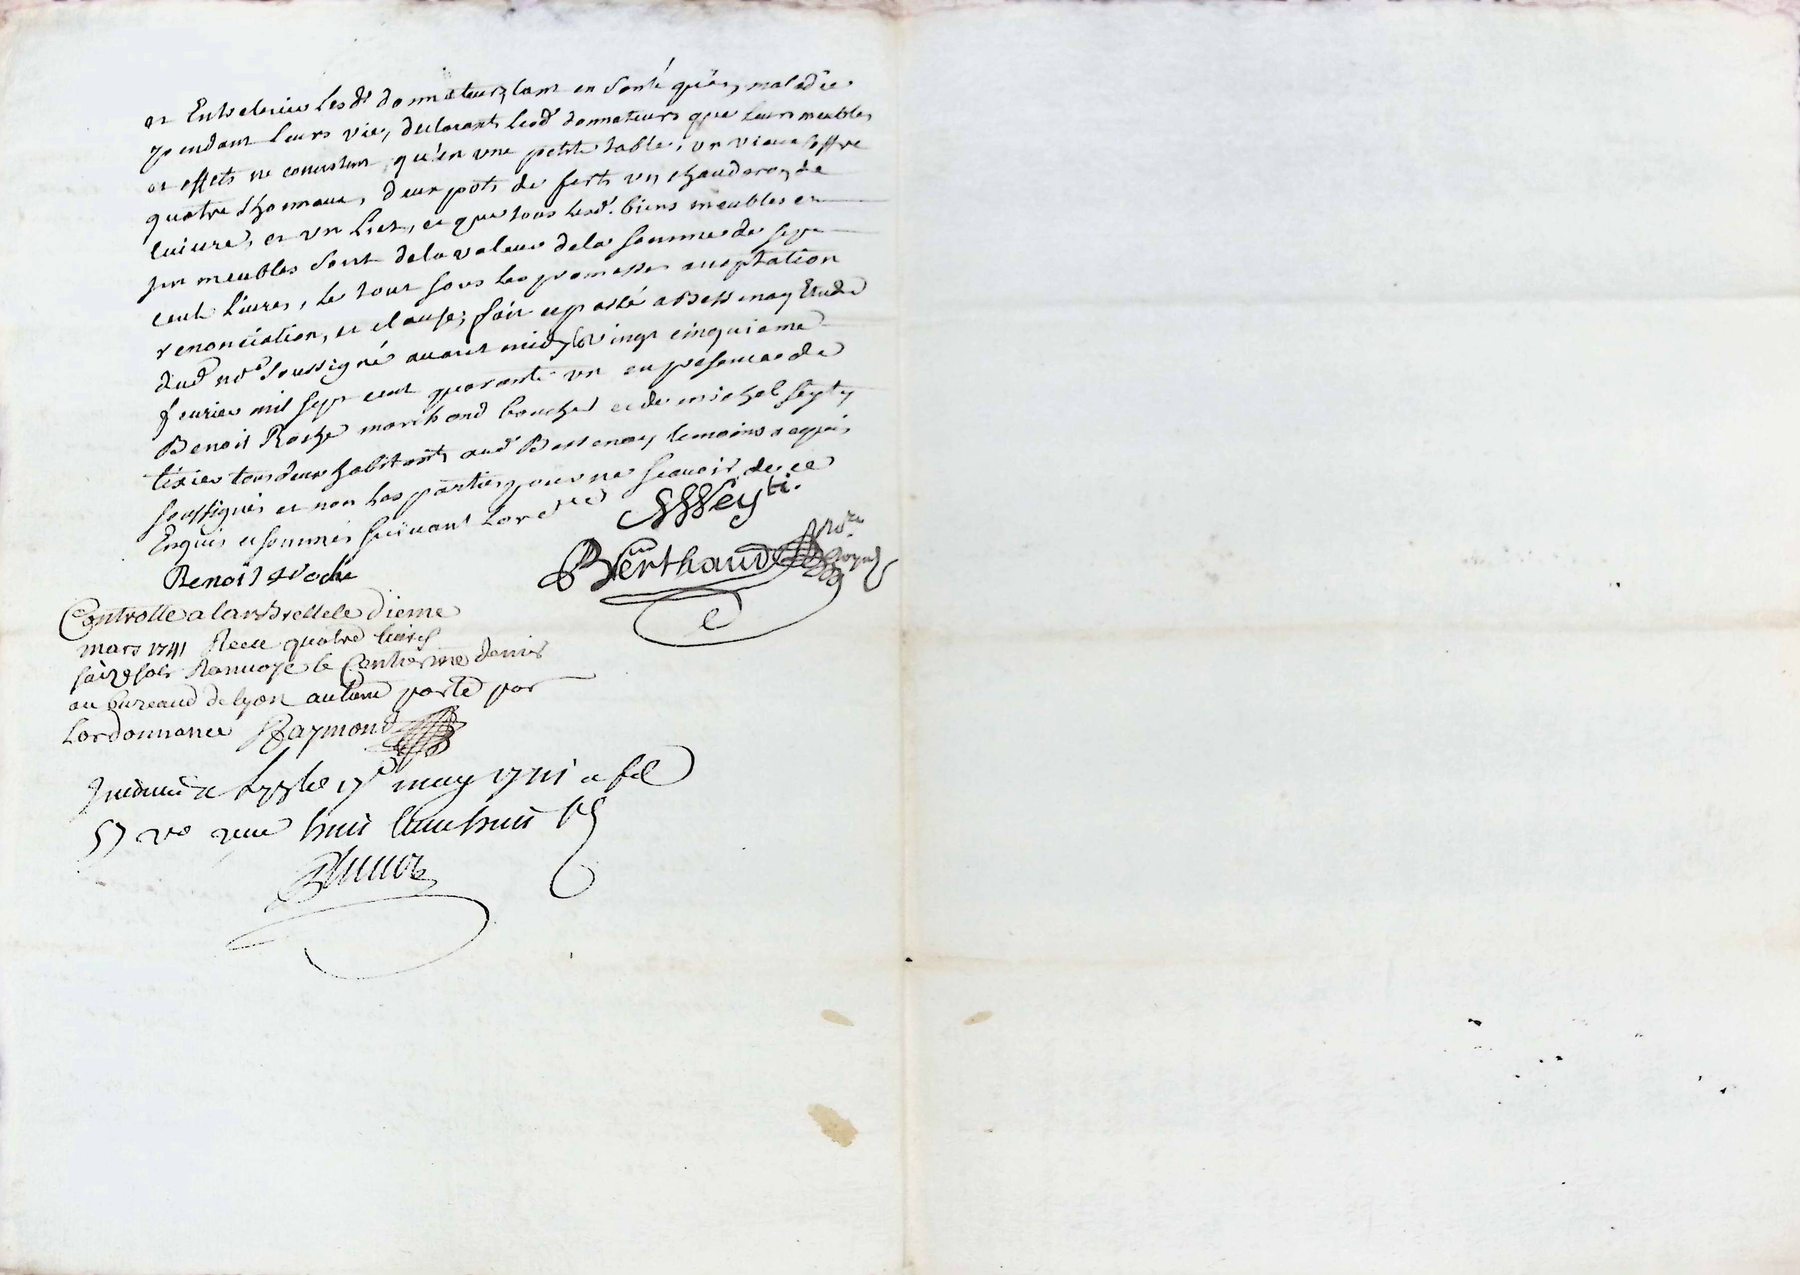 et Entretenir lesd donnateurs, tant en santé qu'en maladie
pendant leurs vie, declarant lesd donnateurs que leurs meubles
et effets ne consistent qu'en une petite table, un vieux coffre
quatre, deux pots de fert, un chauderon de
cuivre, et un lict, et que tous lesd. biens meubles et
im meubles sont de la valeur de la somme de sept
cent livres, le tout sous les promesses acceptation
renonciation, et clauses, fait et passé a Bessenay Etude
dud no.re soussigné avant midy le vingt cinquieme
fevrier mil sept cent quarante un en presence de
Benoit Roche marchand boucher et de michel
tixier tous deux habitants aud Bessenay temoins requis
soussignés et non les parties pour ne scavoir de ce
Enquis et sommés suivant Lord.ce
Benoit Roche
Berthaud No.re Royal
Controlle a larbrelle le dieme
mars 1741 Receu quatre livres
sols Renvoye le Centieme denier
au bureaud de lyon autem porté par
Lordonnance Raymond
Insinué a le 17 may 1741 a fol
57 v.o receu huit livres huit